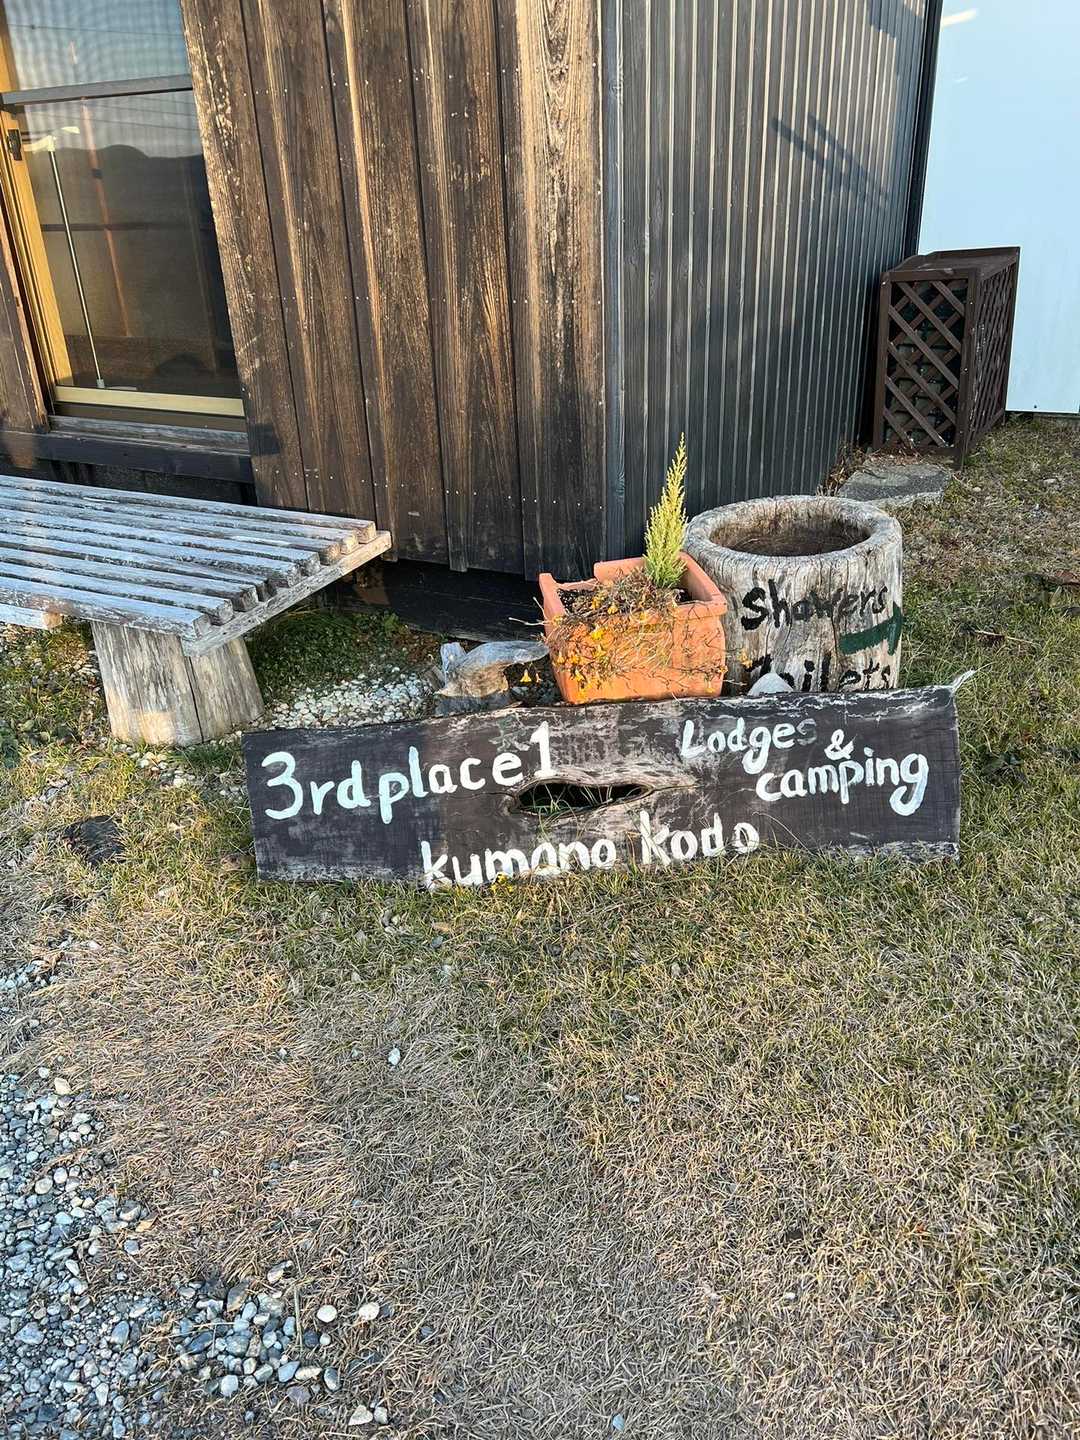 Showers
Toilets
3rd place 1
Lodges &
camping
kumano kodo